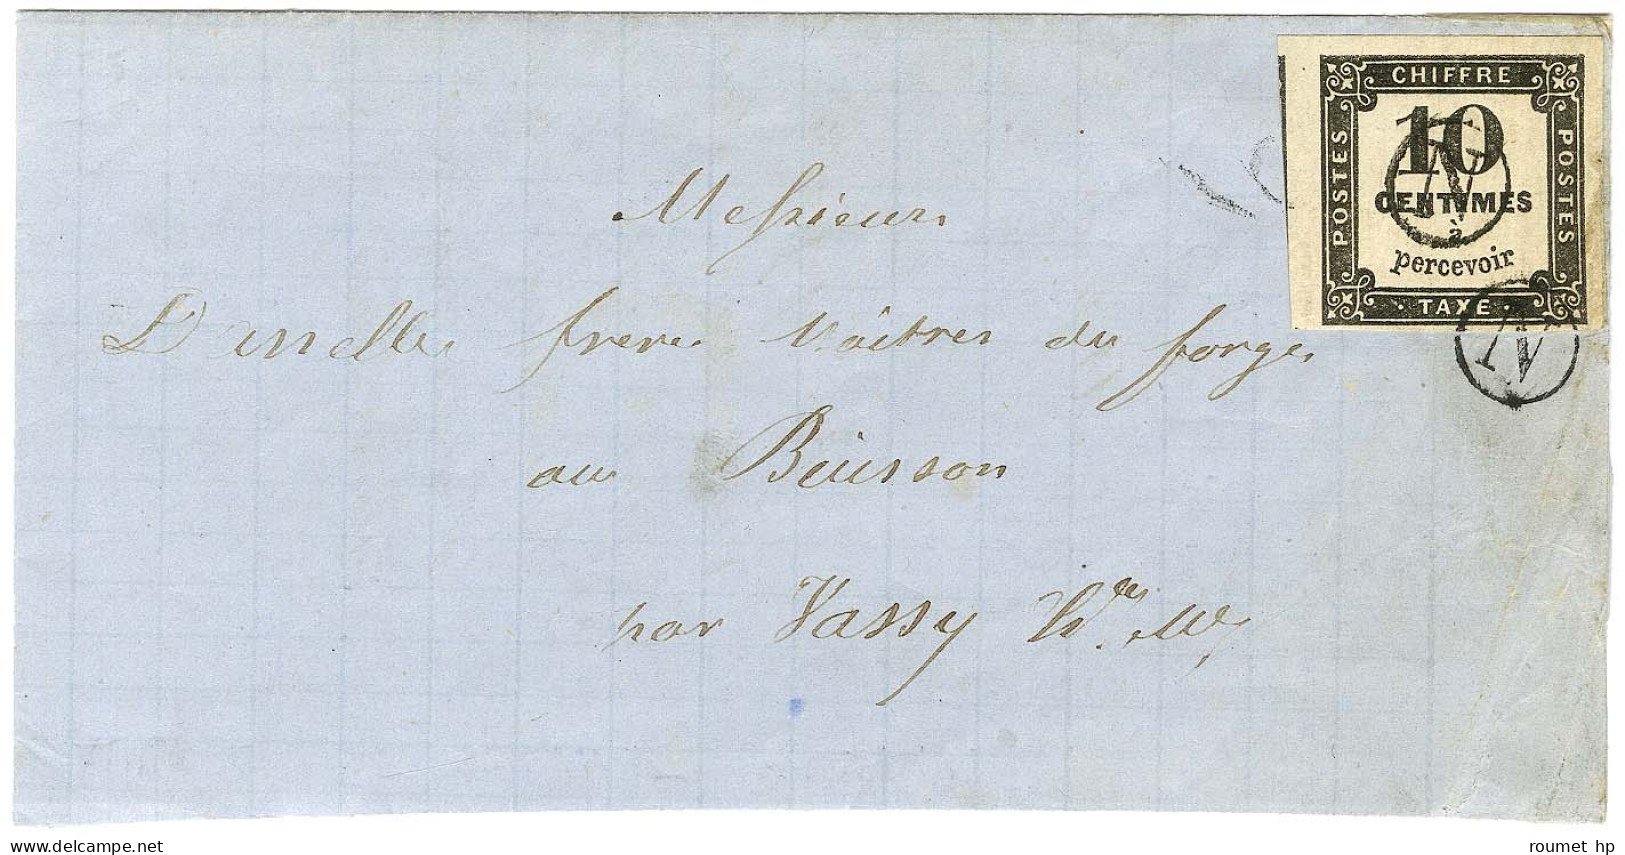 CHIFFRE
POSTES
10
CENTIMES
à
percevoir
POSTES
TAXE
N
N
10
Messieurs
Danelles freres Maîtres du forges
au Buisson
par Vassy Hte Me
delcampe.net
roumet hp